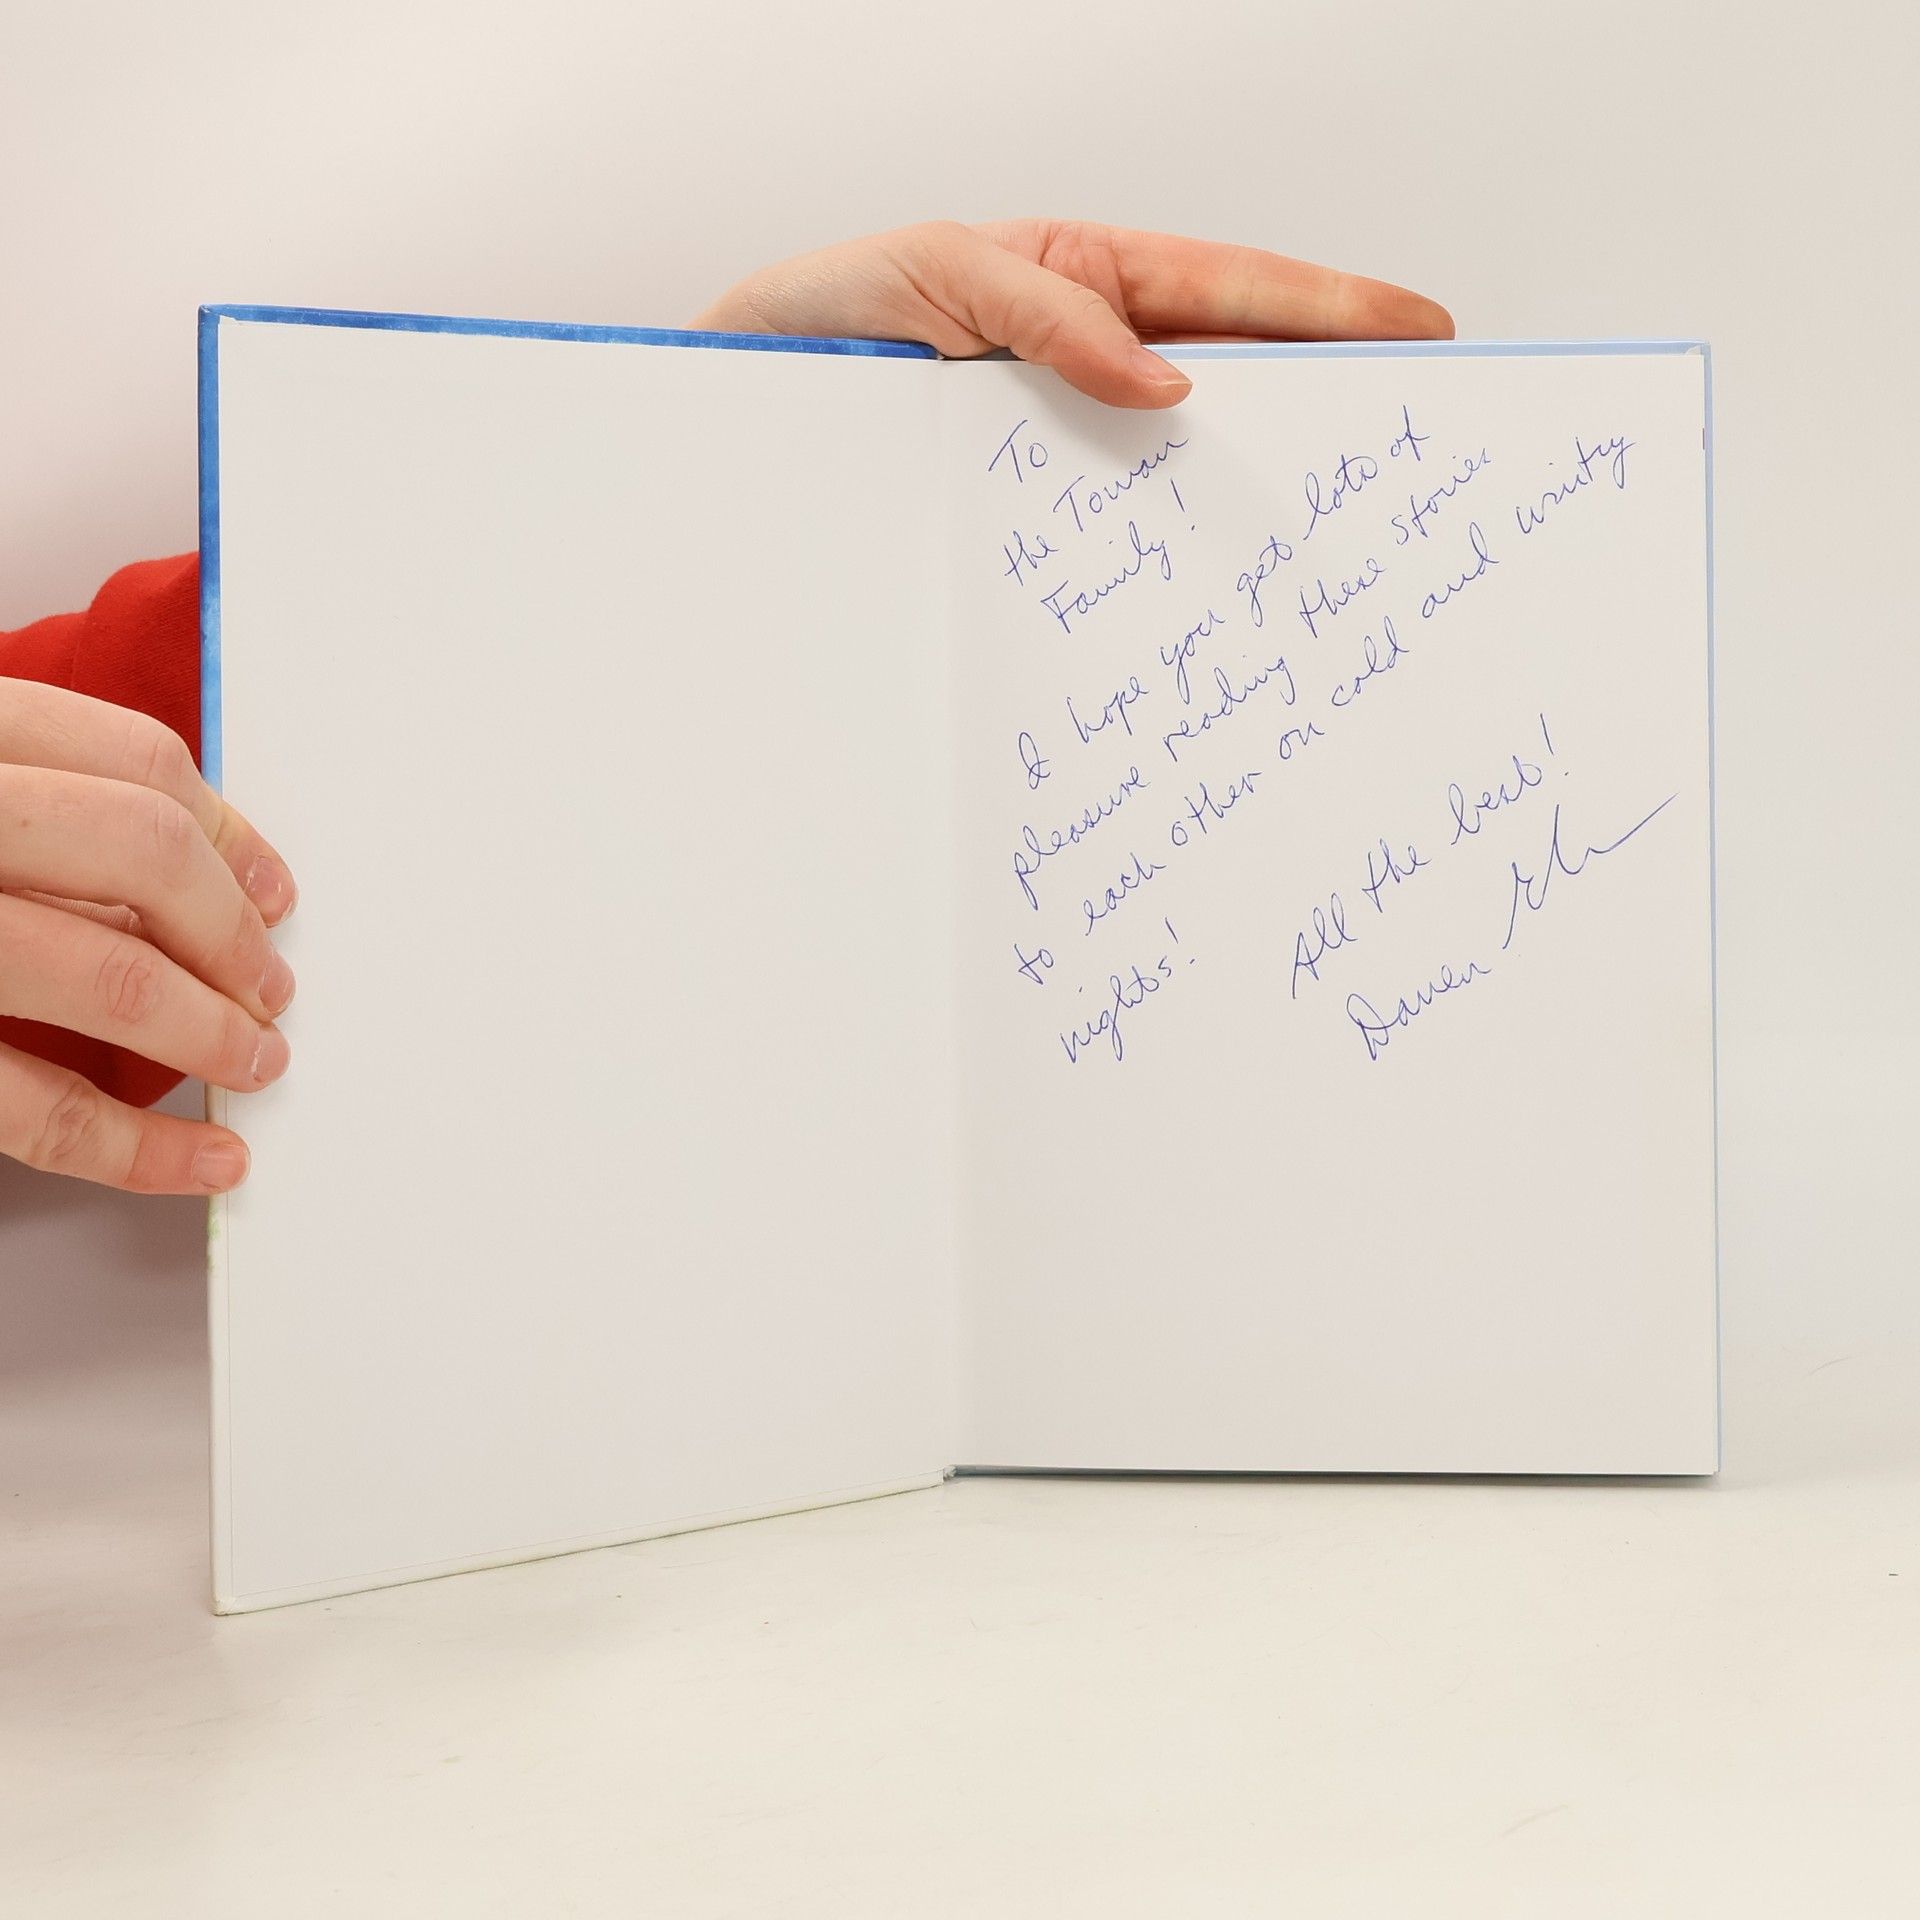 To
the Toman
Family!
I hope you get lots of
pleasure reading these stories
to each other on cold and wintry
nights!
All the best!
Darren